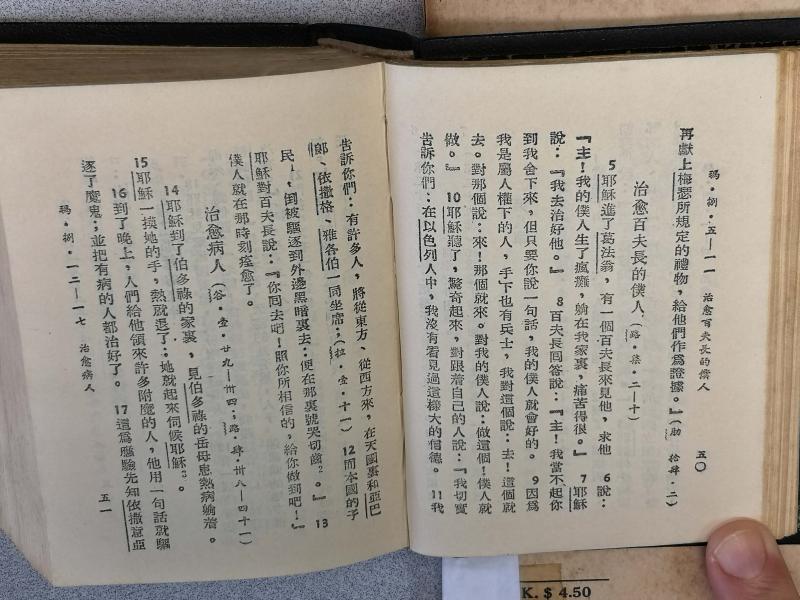 瑪・捌・五—一一 治愈百夫長的僕人 五〇
再獻上梅瑟所規定的禮物，給他們作爲證據。』(肋 拾肆・二)
治愈百夫長的僕人 (路・柒・二—十)
5 耶穌進了葛法翁，有一個百夫長來見他，求他 6 說：
『主！我的僕人生了瘋癱，躺在我家裏，痛苦得很。』 7 耶穌
說：『我去治好他。』 8 百夫長回答說：『主！我當不起你
到我舍下來，但只要你說一句話，我的僕人就會好的。 9 因爲
我是屬人權下的人，手下也有兵士，我對這個說：去！這個就
去。對那個說：來！那個就來。對我的僕人說：做這個！僕人就
做。』 10 耶穌聽了，驚奇起來，對跟着自己的人說：『我切實
告訴你們：在以色列人中，我沒有看見過這樣大的信德。 11 我
告訴你們：有許多人，將從東方、從西方來，在天國裏和亞巴
郎、依撒格、雅各伯一同坐席；(拉・壹・十一) 12 而本國的子
民，倒被驅逐到外邊黑暗裏去：便在那裏號哭切齒。』 13
耶穌對百夫長說：『你回去吧！照你所相信的，給你做到吧！』
僕人就在那時刻痊愈了。
治愈病人 (谷・壹・廿九—卅四；路・肆・卅八—四十一)
14 耶穌到了伯多祿的家裏，見伯多祿的岳母患熱病躺着。
15 耶穌一摸她的手，熱就退了：她就起來伺候耶穌。
16 到了晚上，人們給他領來許多附魔的人，他用一句話就驅
逐了魔鬼；並把有病的人都治好了。 17 這爲應驗先知依撒意亞
瑪・捌・一二—一七 治愈病人 五一
K. $ 4.50